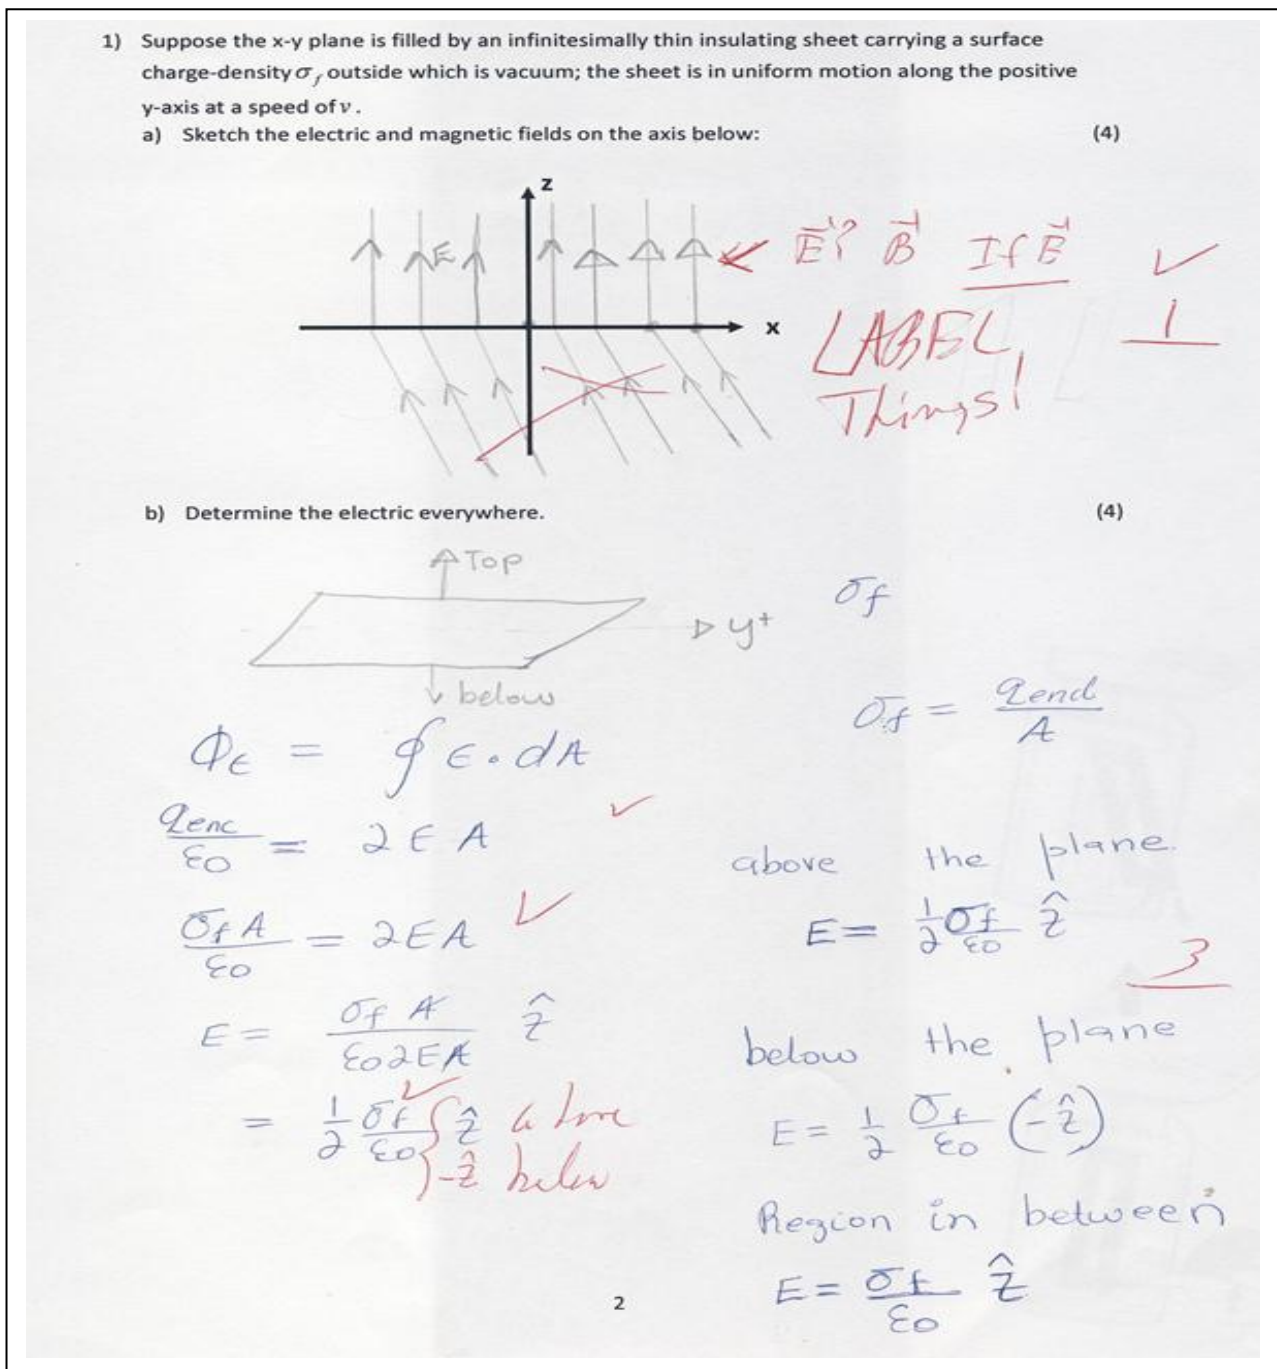 1) Suppose the x-y plane is filled by an infinitesimally thin insulating sheet carrying a surface
charge-density σ_f outside which is vacuum; the sheet is in uniform motion along the positive
y-axis at a speed of v .
a) Sketch the electric and magnetic fields on the axis below: (4)
z
E
E⃗? B⃗ If E⃗ ✓
x
LABEL, 1
Things!
b) Determine the electric everywhere. (4)
Top
σf
y+
below
σf = qencl / A
ΦE = ∮ E . dA
qenc / ε0 = 2 E A ✓
above the plane.
σf A / ε0 = 2EA ✓
E = 1/2 σf / ε0 ẑ
3
E = σf A / ε0 2EA ẑ
below the plane
= 1/2 σf / ε0 ✓ { ẑ above
-ẑ below
E = 1/2 σf / ε0 (-ẑ)
Region in between
E = σf / ε0 ẑ
2